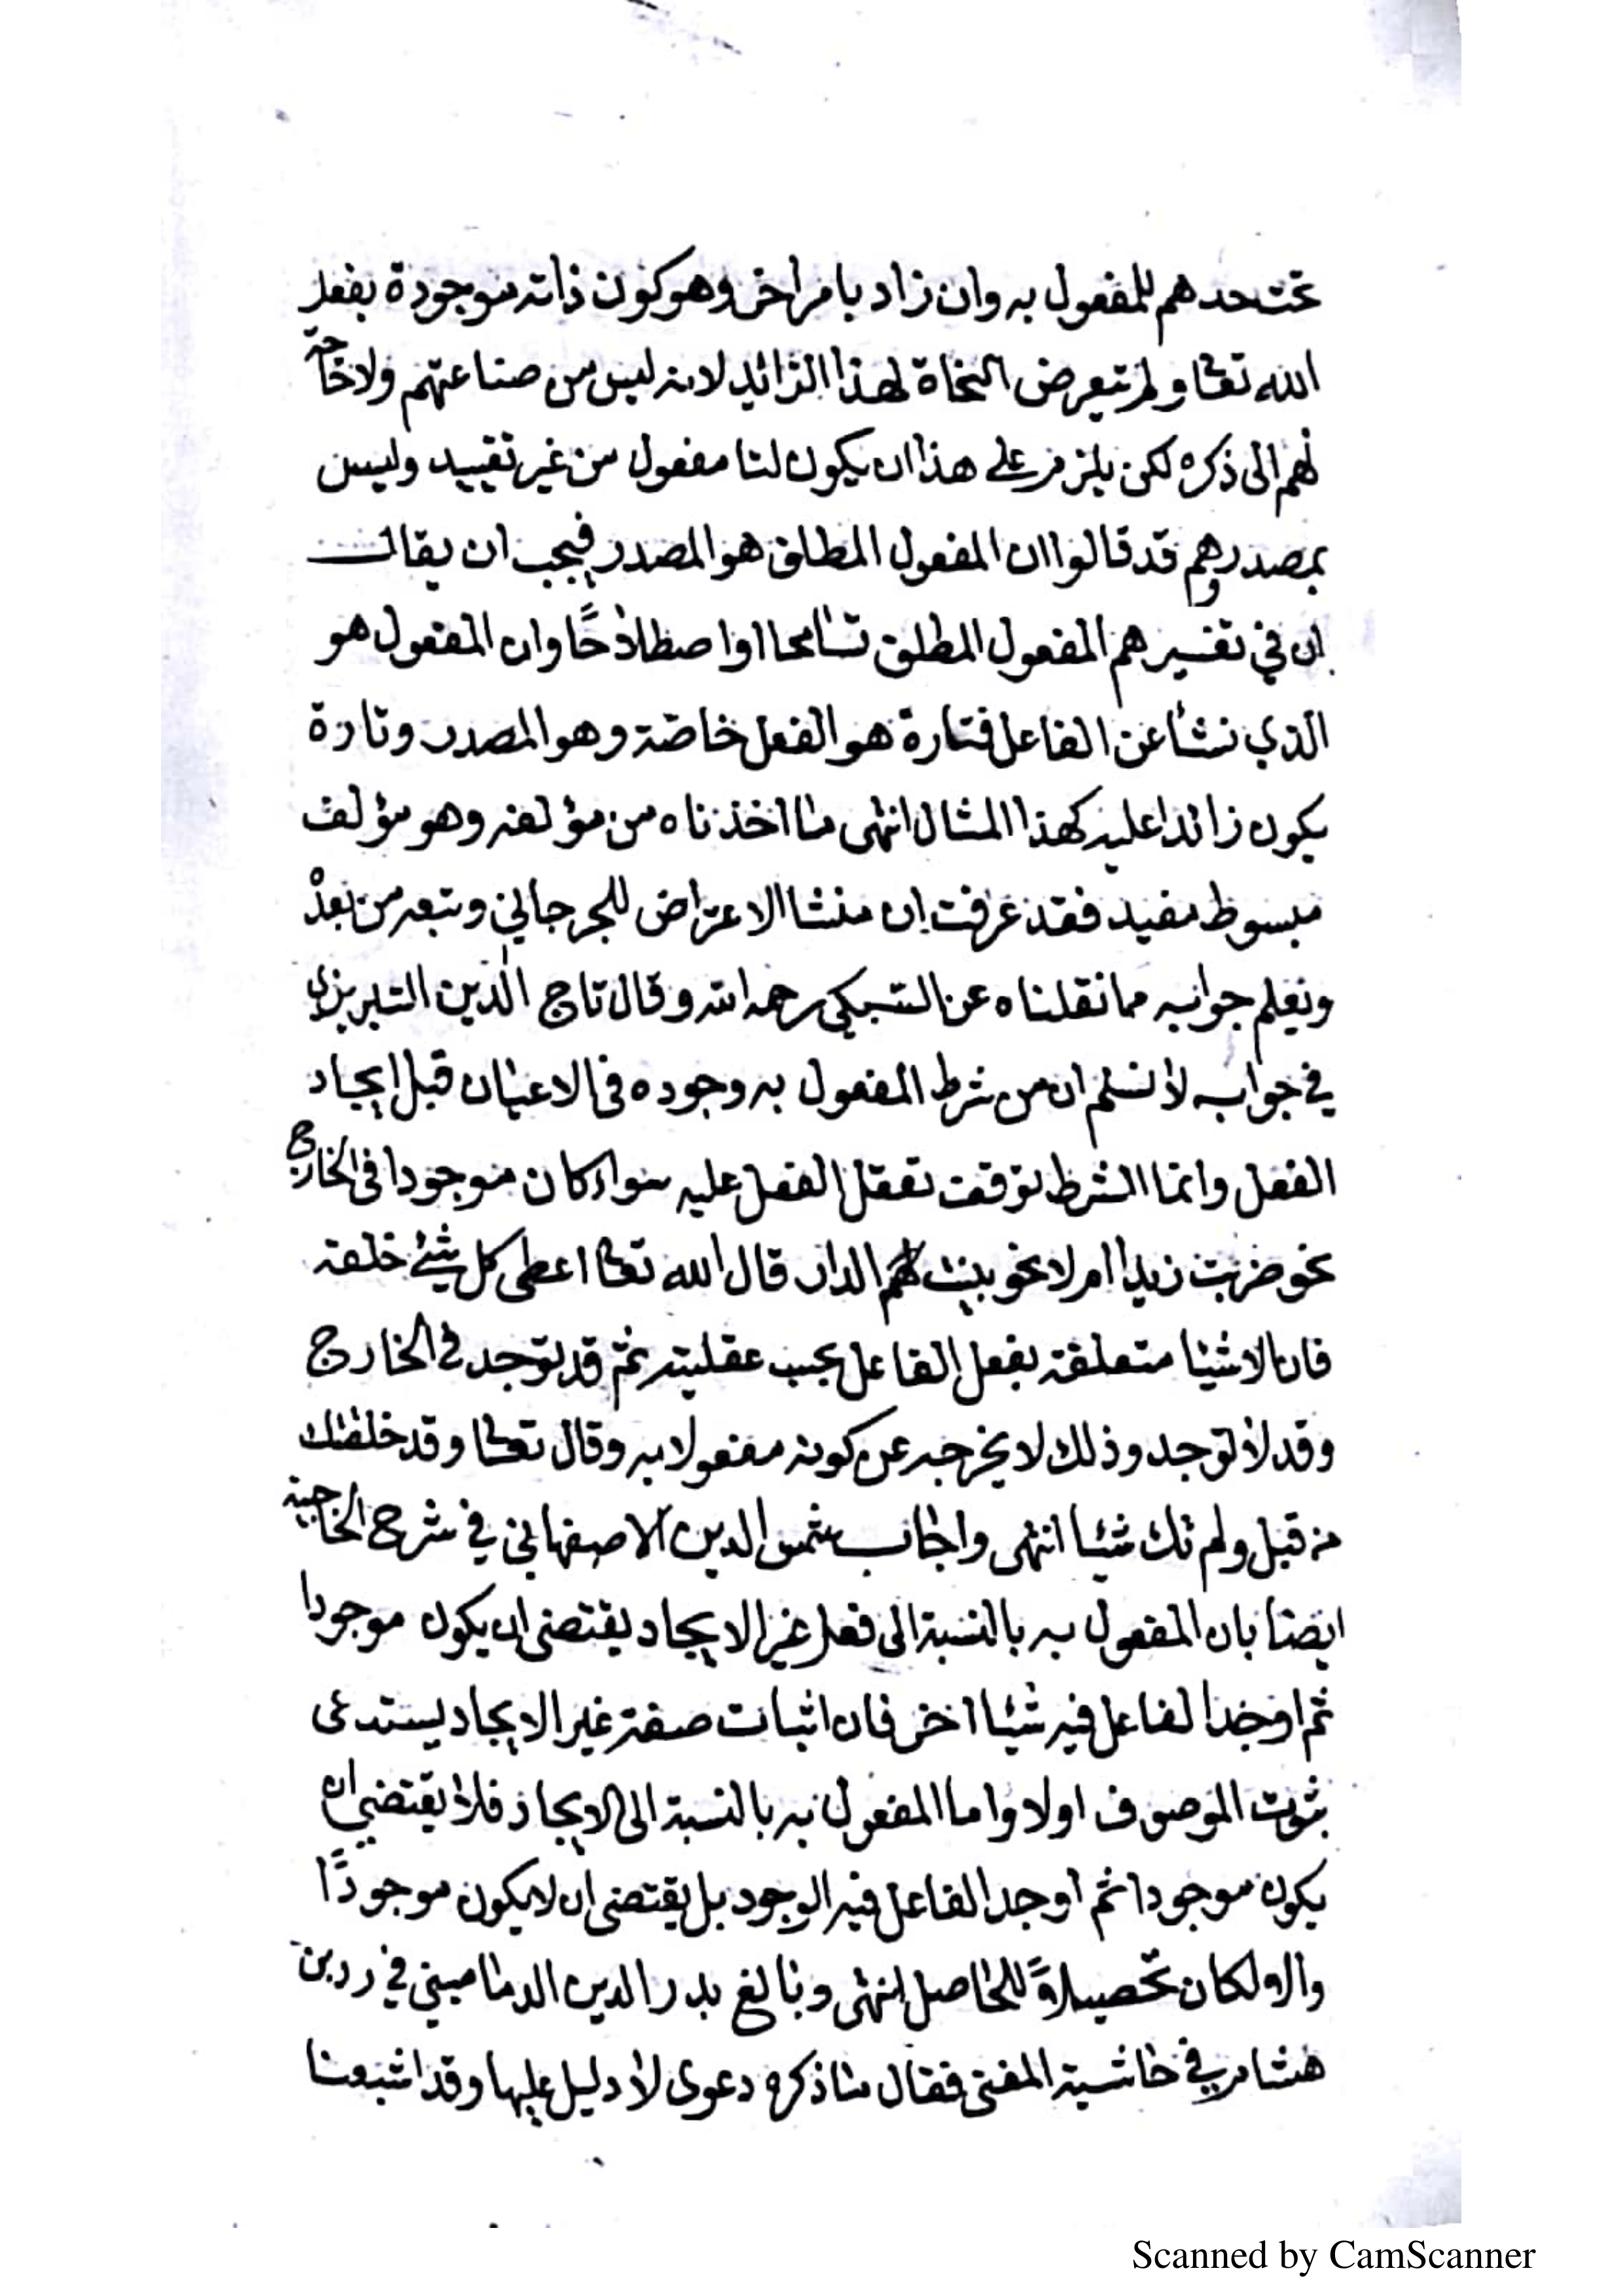 تحت حدهم للمفعول به وان زاد بامر اخر وهو كون ذاته موجودة بفعل
الله تعالى ولم تتعرض النحاة لهذا الزائد لانه ليس من صناعتهم ولا حاجة
لهم الى ذكره لكن يلزم على هذا ان يكون لنا مفعول من غير تقييد وليس
بمصدر وهم قد قالوا ان المفعول المطلق هو المصدر فيجب ان يقال
ان في تفسيرهم المفعول المطلق تسامحا او اصطلاحًا وان المفعول هو
الذي نشأ عن الفاعل فتارة هو الفعل خاصة وهو المصدر وتارة
يكون زائدا عليه كهذا المثال انتهى ما اخذناه من مؤلفه وهو مؤلف
مبسوط مفيد فقد عرفت ان منشا الاعتراض للجرجاني وتبعه من بعدْ
ونعلم جوابه مما نقلناه عن السبكى رحمه الله وقال تاج الدين التبريزى
في جوابه لا نسلم ان من شرط المفعول به وجوده فى الاعيان قبل ايجاد
الفعل وانما الشرط توقف تعقل الفعل عليه سواء كان موجودا فى الخارج
نحو ضربت زيدا ام لا نحو بنيت لهم الدار قال الله تعالى اعطى كل شئ خلقه
فان الاشيا متعلقة بفعل الفاعل بحسب عقليته ثم قد توجد في الخارج
وقد لا توجد وذلك لا يخرجه عن كونه مفعولا به وقال تعالى وقد خلقتك
من قبل ولم تك شيئا انتهى واجاب شمس الدين الاصفهاني في شرح الحاجبية
ايضا بان المفعول به بالنسبة الى فعل غير الايجاد يقتضى ان يكون موجودا
ثم اوجد الفاعل فيه شيئا اخر فان اثبات صفة غير الايجاد يستدعى
ثبوت الموصوف اولا واما المفعول به بالنسبة الى الايجاد فلا يقتضى ان
يكون موجودا ثم اوجد الفاعل فيه الوجود بل يقتضى ان لا يكون موجودًا
والا لكان تحصيلاً للحاصل انتهى وبالغ بدر الدين الدماميني في رد بن
هشام في حاشية المغنى فقال ما ذكره دعوى لا دليل عليها وقد اشبعنا
Scanned by CamScanner